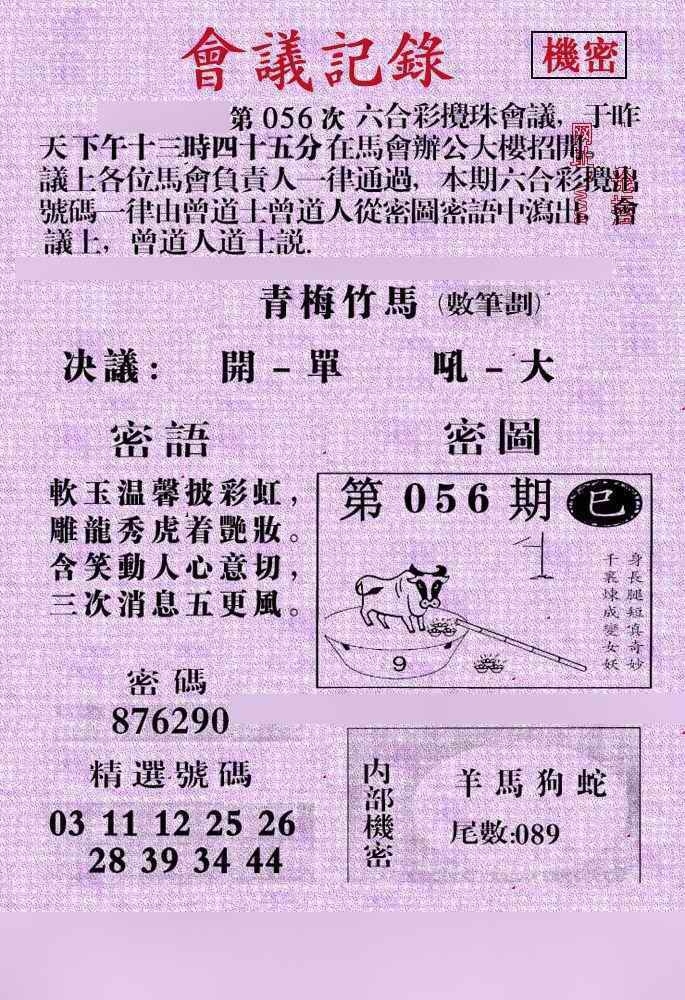 會議記錄
機密
第 056 次 六合彩攪珠會議，于昨
天下午十三時四十五分在馬會辦公大樓招開，
議上各位馬會負責人一律通過，本期六合彩攪出
號碼一律由曾道士曾道人從密圖密語中瀉出，會
議上，曾道人道士説.
青梅竹馬（數筆劃）
决議： 開－單 吼－大
密語
軟玉温馨披彩虹，
雕龍秀虎着艷妝。
含笑動人心意切，
三次消息五更風。
密圖
第 056 期 巳
身長腿短真奇妙
千裏煉成變女妖
9
密碼
876290
精選號碼
03 11 12 25 26
28 39 34 44
内部機密
羊馬狗蛇
尾數:089